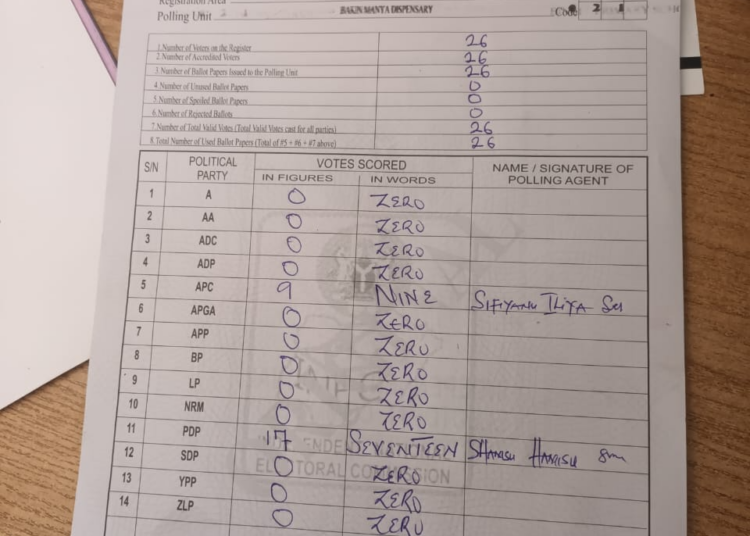 Registration Area
Polling Unit BAKIN MANYA DISPENSARY Code 2
1.Number of Voters on the Register 26
2.Number of Accredited Voters 26
3.Number of Ballot Papers Issued to the Polling Unit 26
4.Number of Unused Ballot Papers 0
5.Number of Spoiled Ballot Papers 0
6.Number of Rejected Ballots 0
7.Number of Total Valid Votes (Total Valid Votes cast for all parties) 26
8.Total Number of Used Ballot Papers (Total of #5 + #6 + #7 above) 26
S/N POLITICAL PARTY VOTES SCORED NAME / SIGNATURE OF POLLING AGENT
IN FIGURES IN WORDS
1 A 0 ZERO
2 AA 0 ZERO
3 ADC 0 ZERO
4 ADP 0 ZERO
5 APC 9 NINE SIFIYANU ILIYA
6 APGA 0 ZERO
7 APP 0 ZERO
8 BP 0 ZERO
9 LP 0 ZERO
10 NRM 0 ZERO
11 PDP 17 SEVENTEEN
12 SDP 0 ZERO
13 YPP 0 ZERO
14 ZLP 0 ZERO